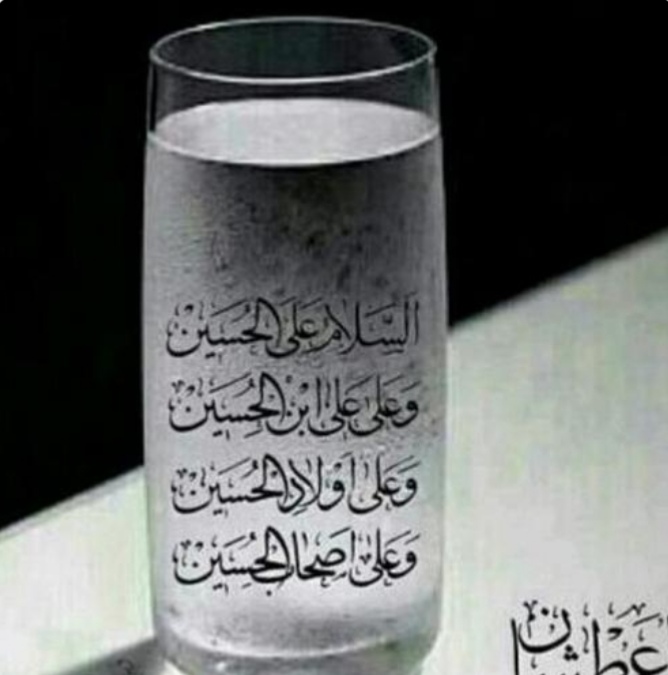 اَلسَّلامُ عَلَى الحُسَين
وَعَلى عَلى ابنِ الحُسَين
وَعَلى اَوْلادِ الحُسَين
وَعَلى اَصحابِ الحُسَين
عَطشان